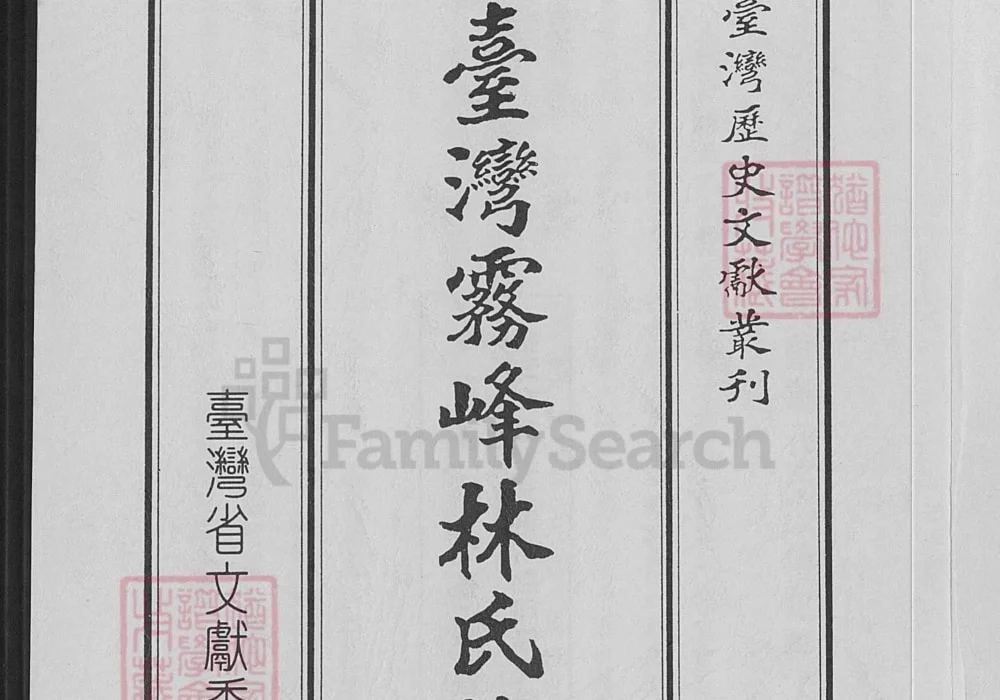 臺灣歷史文獻叢刊
臺灣霧峰林氏
臺灣省文獻
FamilySearch